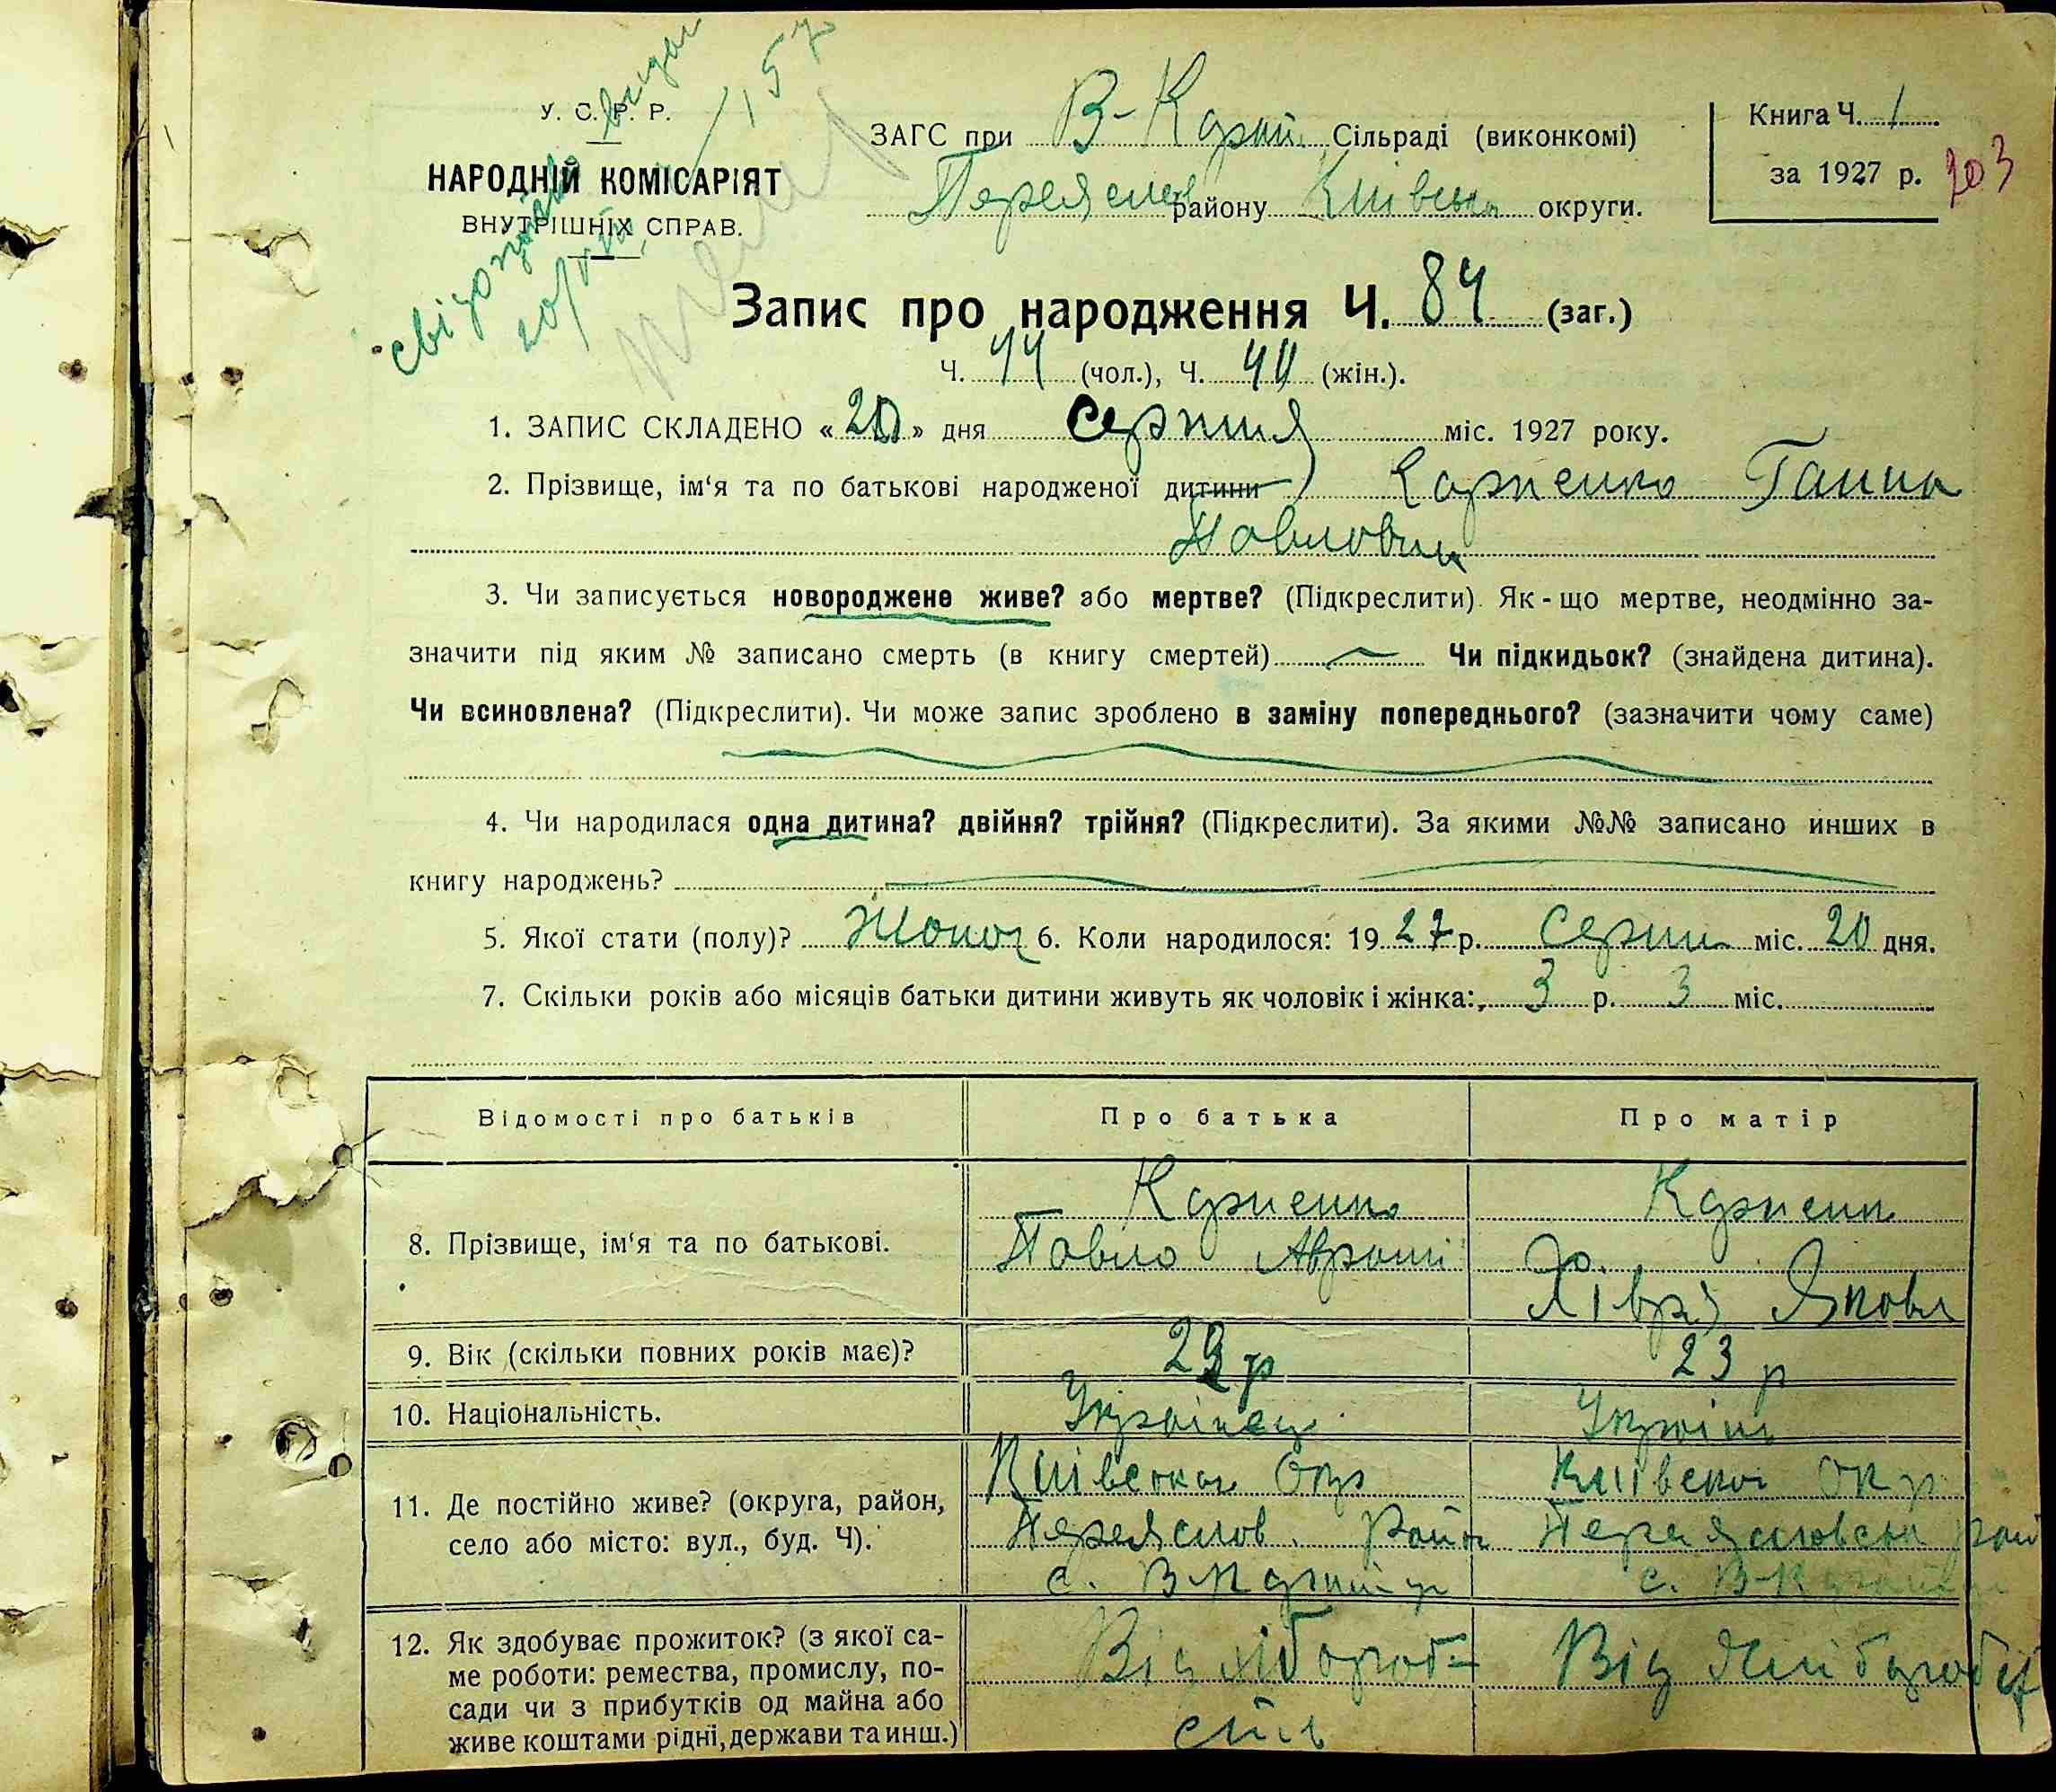 У. С. Р. Р.
НАРОДНІЙ КОМІСАРІЯТ
ВНУТРІШНІХ СПРАВ.
ЗАГС при В-Карат. Сільраді (виконкомі)
Переяслов району Київська округи.
Книга Ч. 1
за 1927 р. 203
Запис про народження Ч. 84 (заг.)
Ч. 44 (чол.), Ч. 40 (жін.).
1. ЗАПИС СКЛАДЕНО « 20 » дня Серпня міс. 1927 року.
2. Прізвище, ім'я та по батькові народженої дитини Карпенко Ганна
Павловна
3. Чи записується новороджене живе? або мертве? (Підкреслити). Як-що мертве, неодмінно за-
значити під яким № записано смерть (в книгу смертей) Чи підкидьок? (знайдена дитина).
Чи всиновлена? (Підкреслити). Чи може запис зроблено в заміну попереднього? (зазначити чому саме)
4. Чи народилася одна дитина? двійня? трійня? (Підкреслити). За якими №№ записано инших в
книгу народжень?
5. Якої стати (полу)? Жоноч 6. Коли народилося: 19 27 р. Серпн міс. 20 дня.
7. Скільки років або місяців батьки дитини живуть як чоловік і жінка: 3 р. 3 міс.
Відомості про батьків Про батька Про матір
8. Прізвище, ім'я та по батькові.
Карпенко
Павло Аврамі
Карпенк
Хівря Яковл
9. Вік (скільки повних років має)? 23 р
10. Національність. Українець Україн
11. Де постійно живе? (округа, район,
село або місто: вул., буд. Ч).
Київська Окр
Переяслов. район
с. В-Каратуль
Київської окр
Переясловськ рай
с. В-Каратуль
12. Як здобуває прожиток? (з якої са-
ме роботи: ремества, промислу, по-
сади чи з прибутків од майна або
живе коштами рідні, держави та инш.)
Від хлібороб-
Від